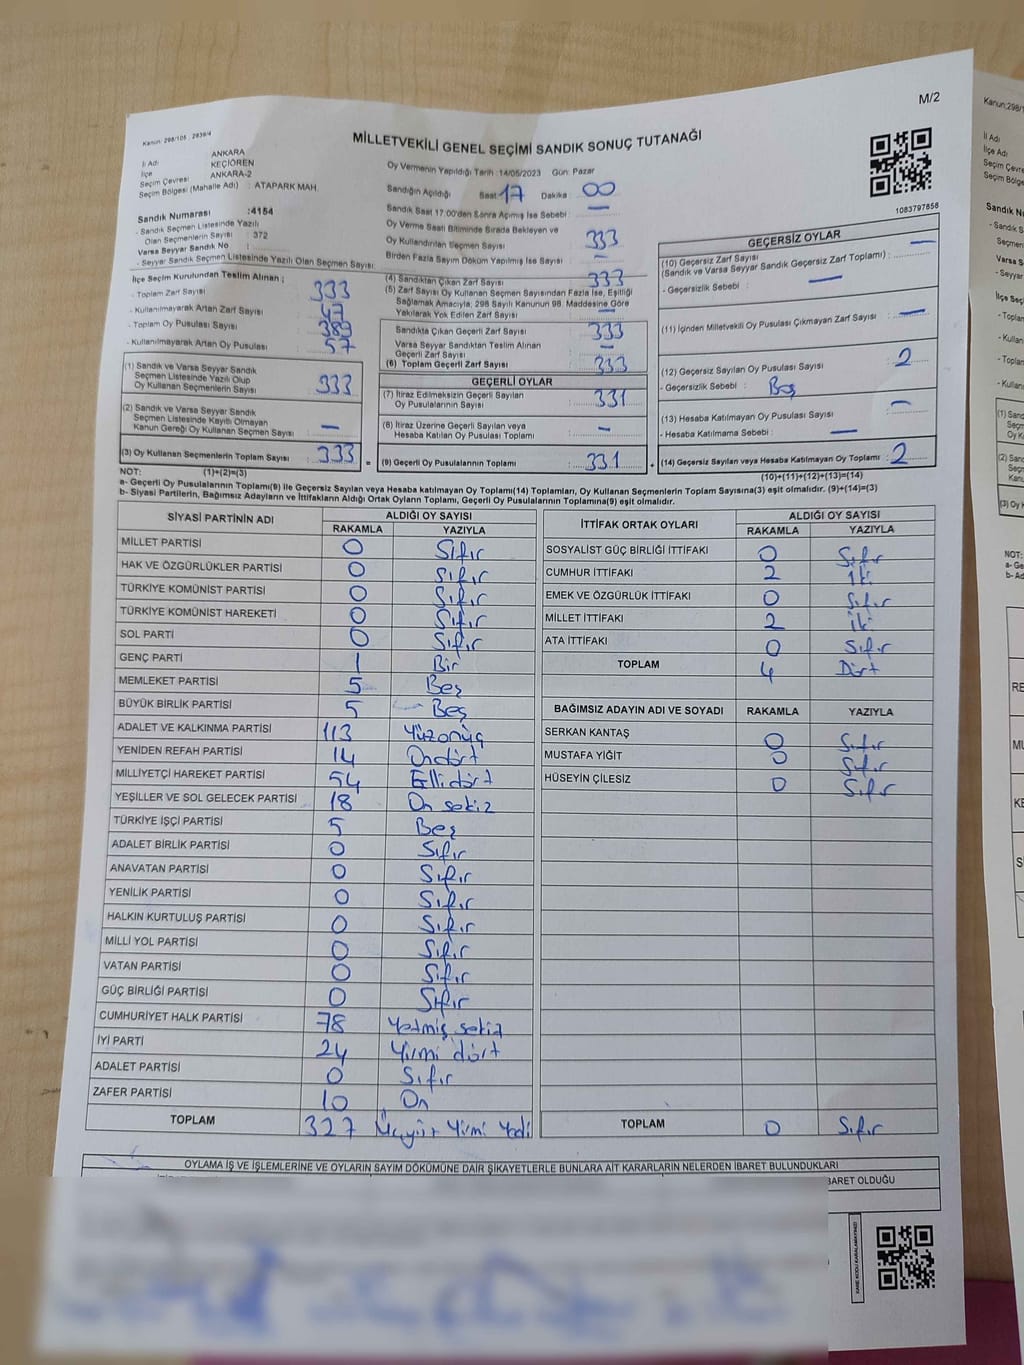 M/2
Kanun: 298/105 , 2839/4
MİLLETVEKİLİ GENEL SEÇİMİ SANDIK SONUÇ TUTANAĞI
İl Adı : ANKARA
İlçe : KEÇİÖREN
Seçim Çevresi : ANKARA-2
Seçim Bölgesi (Mahalle Adı) : ATAPARK MAH.
Oy Vermenin Yapıldığı Tarih :14/05/2023 Gün: Pazar
Sandığın Açıldığı Saat 17 Dakika 00
Sandık Saat 17:00'den Sonra Açılmış İse Sebebi : —
Oy Verme Saati Bitiminde Sırada Bekleyen ve
Oy Kullandırılan Seçmen Sayısı : 333
Birden Fazla Sayım Döküm Yapılmış İse Sayısı : —
1083797858
Sandık Numarası :4154
- Sandık Seçmen Listesinde Yazılı
Olan Seçmenlerin Sayısı : 372
Varsa Seyyar Sandık No :
- Seyyar Sandık Seçmen Listesinde Yazılı Olan Seçmen Sayısı:
İlçe Seçim Kurulundan Teslim Alınan ;
- Toplam Zarf Sayısı : 333
- Kullanılmayarak Artan Zarf Sayısı : 47
- Toplam Oy Pusulası Sayısı : 389
- Kullanılmayarak Artan Oy Pusulası : 57
(1) Sandık ve Varsa Seyyar Sandık
Seçmen Listesinde Yazılı Olup
Oy Kullanan Seçmenlerin Sayısı : 333
(2) Sandık ve Varsa Seyyar Sandık
Seçmen Listesinde Kayıtlı Olmayan
Kanun Gereği Oy Kullanan Seçmen Sayısı : —
(3) Oy Kullanan Seçmenlerin Toplam Sayısı : 333
(4) Sandıktan Çıkan Zarf Sayısı : 333
(5) Zarf Sayısı Oy Kullanan Seçmen Sayısından Fazla İse, Eşitliği
Sağlamak Amacıyla, 298 Sayılı Kanunun 98. Maddesine Göre
Yakılarak Yok Edilen Zarf Sayısı : —
Sandıkta Çıkan Geçerli Zarf Sayısı : 333
Varsa Seyyar Sandıktan Teslim Alınan
Geçerli Zarf Sayısı : —
(6) Toplam Geçerli Zarf Sayısı : 333
GEÇERLİ OYLAR
(7) İtiraz Edilmeksizin Geçerli Sayılan
Oy Pusulalarının Sayısı : 331
(8) İtiraz Üzerine Geçerli Sayılan veya
Hesaba Katılan Oy Pusulası Toplamı : —
= (9) Geçerli Oy Pusulalarının Toplamı : 331
GEÇERSİZ OYLAR
(10) Geçersiz Zarf Sayısı
(Sandık ve Varsa Seyyar Sandık Geçersiz Zarf Toplamı) : —
- Geçersizlik Sebebi : —
(11) İçinden Milletvekili Oy Pusulası Çıkmayan Zarf Sayısı : —
(12) Geçersiz Sayılan Oy Pusulası Sayısı : 2
- Geçersizlik Sebebi : Boş
(13) Hesaba Katılmayan Oy Pusulası Sayısı : —
- Hesaba Katılmama Sebebi : —
+ (14) Geçersiz Sayılan veya Hesaba Katılmayan Oy Toplamı : 2
NOT: (1)+(2)=(3)
(10)+(11)+(12)+(13)=(14)
a- Geçerli Oy Pusulalarının Toplamı(9) ile Geçersiz Sayılan veya Hesaba katılmayan Oy Toplamı(14) Toplamları, Oy Kullanan Seçmenlerin Toplam Sayısına(3) eşit olmalıdır. (9)+(14)=(3)
b- Siyasi Partilerin, Bağımsız Adayların ve İttifakların Aldığı Ortak Oyların Toplamı, Geçerli Oy Pusulalarının Toplamına(9) eşit olmalıdır.
SİYASİ PARTİNİN ADI ALDIĞI OY SAYISI
RAKAMLA YAZIYLA
MİLLET PARTİSİ 0 Sıfır
HAK VE ÖZGÜRLÜKLER PARTİSİ 0 Sıfır
TÜRKİYE KOMÜNİST PARTİSİ 0 Sıfır
TÜRKİYE KOMÜNİST HAREKETİ 0 Sıfır
SOL PARTİ 0 Sıfır
GENÇ PARTİ 1 Bir
MEMLEKET PARTİSİ 5 Beş
BÜYÜK BİRLİK PARTİSİ 5 Beş
ADALET VE KALKINMA PARTİSİ 113 Yüzonüç
YENİDEN REFAH PARTİSİ 14 Ondört
MİLLİYETÇİ HAREKET PARTİSİ 54 Ellidört
YEŞİLLER VE SOL GELECEK PARTİSİ 18 On sekiz
TÜRKİYE İŞÇİ PARTİSİ 5 Beş
ADALET BİRLİK PARTİSİ 0 Sıfır
ANAVATAN PARTİSİ 0 Sıfır
YENİLİK PARTİSİ 0 Sıfır
HALKIN KURTULUŞ PARTİSİ 0 Sıfır
MİLLİ YOL PARTİSİ 0 Sıfır
VATAN PARTİSİ 0 Sıfır
GÜÇ BİRLİĞİ PARTİSİ 0 Sıfır
CUMHURİYET HALK PARTİSİ 78 Yetmiş sekiz
İYİ PARTİ 24 Yirmi dört
ADALET PARTİSİ 0 Sıfır
ZAFER PARTİSİ 10 On
TOPLAM 327 Üçyüz Yirmi Yedi
İTTİFAK ORTAK OYLARI ALDIĞI OY SAYISI
RAKAMLA YAZIYLA
SOSYALİST GÜÇ BİRLİĞİ İTTİFAKI 0 Sıfır
CUMHUR İTTİFAKI 2 İki
EMEK VE ÖZGÜRLÜK İTTİFAKI 0 Sıfır
MİLLET İTTİFAKI 2 İki
ATA İTTİFAKI 0 Sıfır
TOPLAM 4 Dört
BAĞIMSIZ ADAYIN ADI VE SOYADI RAKAMLA YAZIYLA
SERKAN KANTAŞ 0 Sıfır
MUSTAFA YİĞİT 0 Sıfır
HÜSEYİN ÇİLESİZ 0 Sıfır
TOPLAM 0 Sıfır
OYLAMA İŞ VE İŞLEMLERİNE VE OYLARIN SAYIM DÖKÜMÜNE DAİR ŞİKAYETLERLE BUNLARA AİT KARARLARIN NELERDEN İBARET BULUNDUKLARI
BARET OLDUĞU
KARE KODU KARALAMAYINIZ!
Kanun:298/1
İli Adı
İlçe Adı
Seçim Çevre
Seçim Bölge